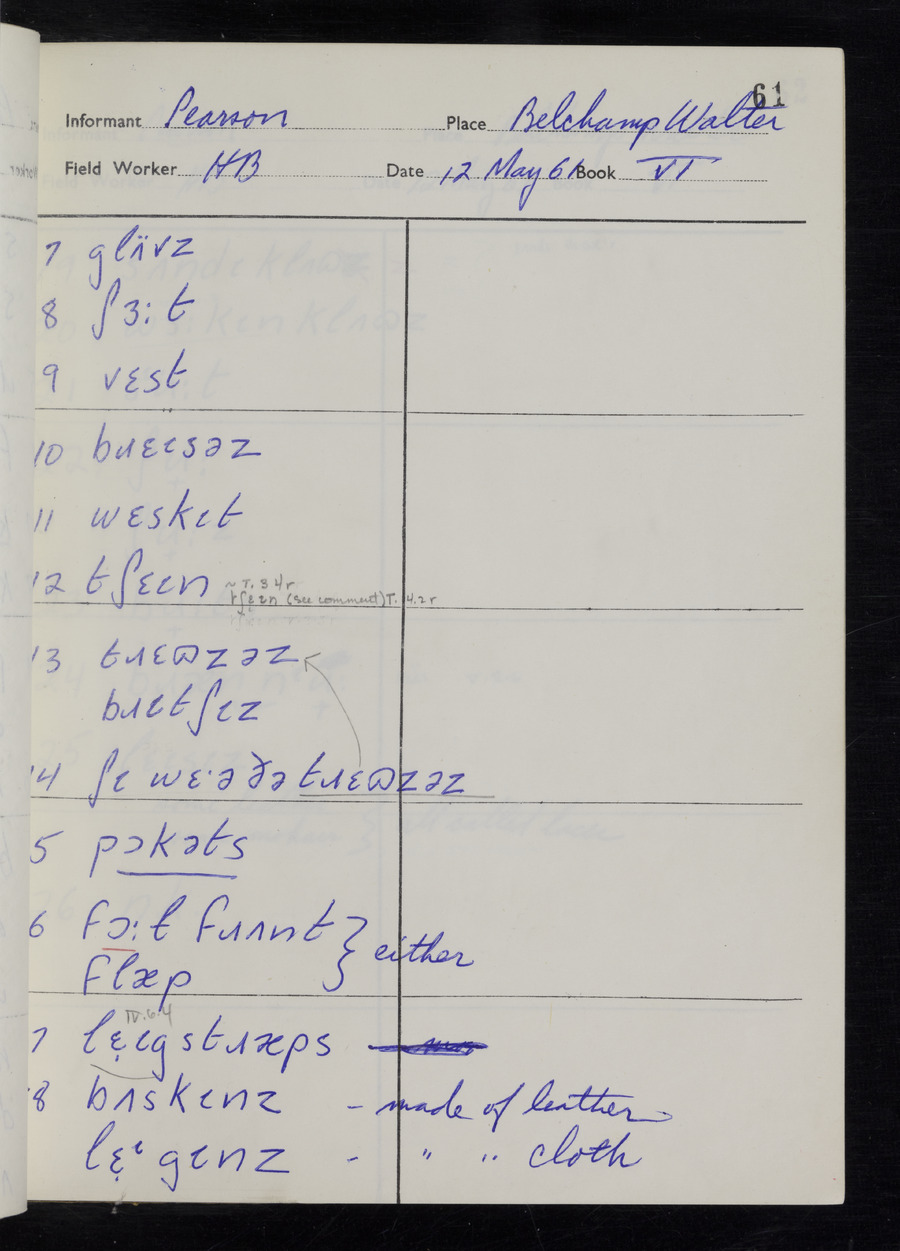 61
Informant Pearson Place Belchamp Walter
Field Worker HB Date 12 May 61 Book VI
7 glʌ̈vz
8 ʃɜːt
9 vɛst
10 bɹɛɩsəz
11 wɛskɩt
12 tʃɛɩn ~ T. 3 4r
tʃɛɩn (see comment) T. 4.2r
13 tɹɛɷzəz
bɹɩtʃɩz
14 ʃɩ wɛ·ə ðə tɹɛɷzəz
5 pɔkəts
6 fɔːl fɹʌnt } either
flæp
IV.6.4
7 lɛ̣ɩgstɹæps
8 bʌskɩnz - made of leather
lɛ̣ɩgɩnz - " " cloth